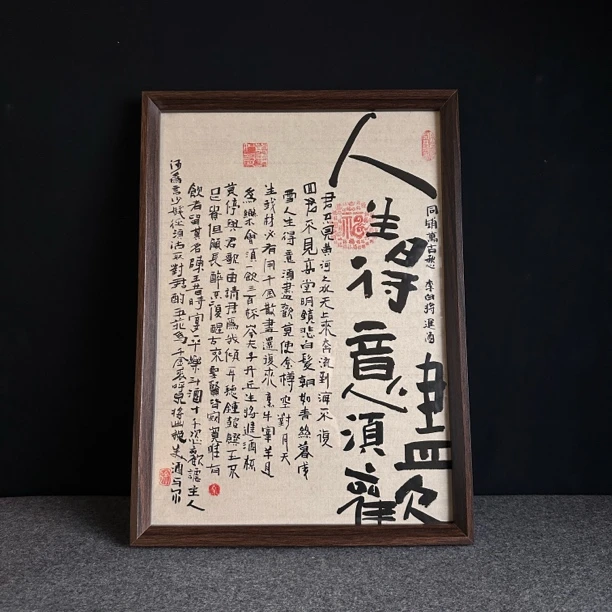 人生得意須盡歡
同銷萬古愁 李白將進酒
君不見黄河之水天上來奔流到海不復
回君不見高堂明鏡悲白髮朝如青絲暮成
雪人生得意須盡歡莫使金樽空對月天
生我材必有用千金散盡還復來烹牛宰羊且
為樂會須一飲三百杯岑夫子丹丘生將進酒杯
莫停與君歌一曲請君為我傾耳聽鐘鼓饌玉不
足貴但願長醉不復醒古來聖賢皆寂寞唯有
飲者留其名陳王昔時宴平樂斗酒十千恣歡謔主人
何為言少錢徑須沽取對君酌五花馬千金裘呼兒將出換美酒與尔